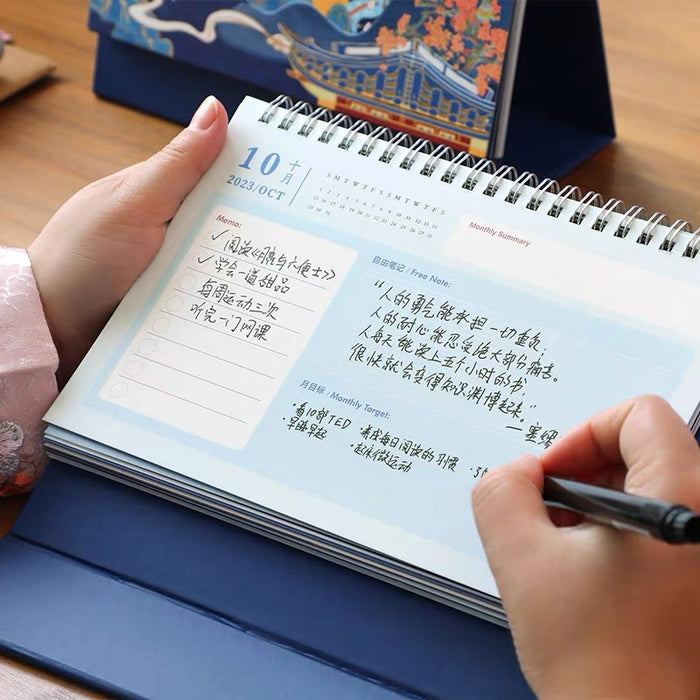 10 十月
2023/OCT
S M T W T F S S M T W T F S
Monthly Summary
Memo:
✓ 阅读《月亮与六便士》
✓ 学会一道甜品
每周运动三次
听完一门网课
自由笔记 / Free Note:
“人的勇气能承担一切重负;
人的耐心能忍受绝大部分痛苦。
人每天能读上五个小时的书,
很快就会变得知识渊博起来。”
—塞缪
月目标 / Monthly Target:
·看10部TED ·养成每日阅读的习惯
·早睡早起 ·起床微运动